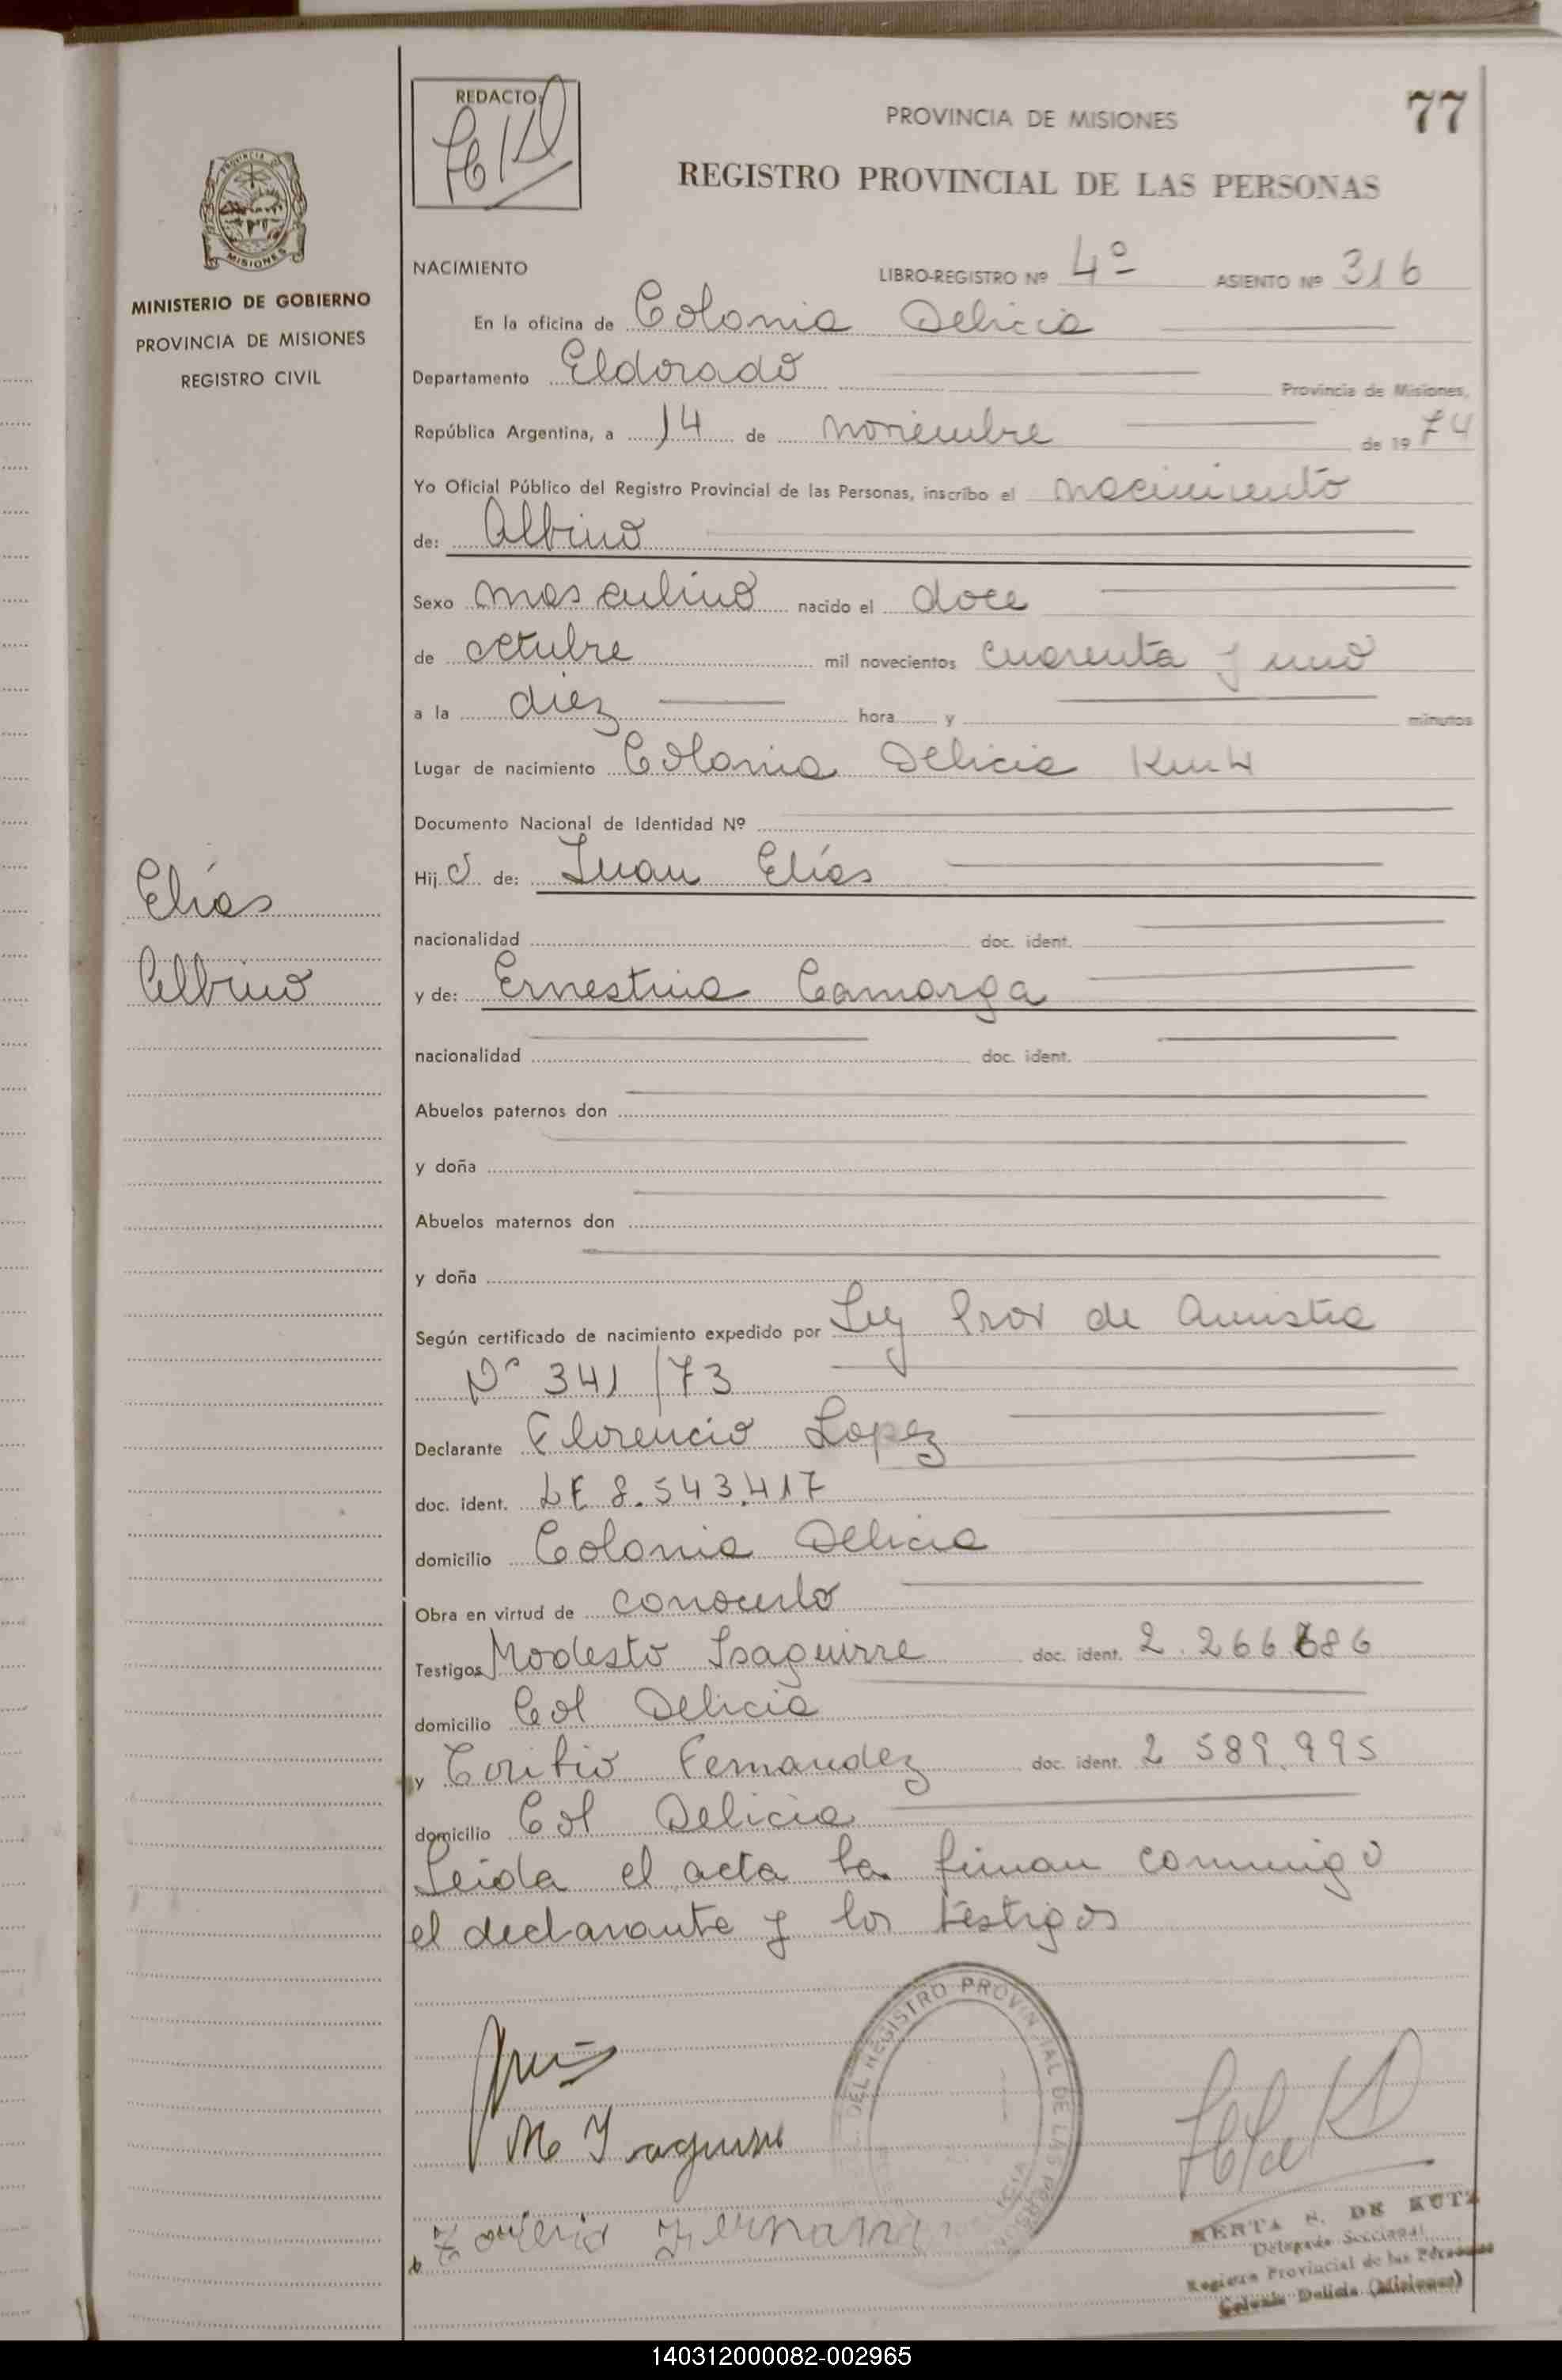 REDACTO:
PROVINCIA DE MISIONES
77
REGISTRO PROVINCIAL DE LAS PERSONAS
MISIONES
MINISTERIO DE GOBIERNO
PROVINCIA DE MISIONES
REGISTRO CIVIL
NACIMIENTO LIBRO-REGISTRO Nº 4º ASIENTO Nº 316
En la oficina de Colonia Delicia
Departamento Eldorado Provincia de Misiones,
República Argentina, a 14 de noviembre de 1974
Yo Oficial Público del Registro Provincial de las Personas, inscribo el nacimiento
de: Albino
Sexo masculino nacido el doce
de octubre mil novecientos cuarenta y uno
a la diez hora y minutos
Lugar de nacimiento Colonia Delicia Km 4
Documento Nacional de Identidad Nº
Hijo de: Juan Elías
Elías
nacionalidad doc. ident.
Albino
y de: Ernestina Camarga
nacionalidad doc. ident.
Abuelos paternos don
y doña
Abuelos maternos don
y doña
Según certificado de nacimiento expedido por Ley Prov de Amnistia
Nº 341/73
Declarante Florencio Lopez
doc. ident. LE 8.543.417
domicilio Colonia Delicia
Obra en virtud de conocerlo
Testigos Modesto Isaguirre doc. ident. 2.266.686
domicilio Col Delicia
y Toribio Fernandez doc. ident. 2 589.995
domicilio Col Delicia
Leida el acta la firman conmigo
el declarante y los testigos
DEL REGISTRO PROVINCIAL DE LAS PERSONAS
M Isaguirre
DE KUTZ
Delegada Seccional
Registro Provincial de las Personas
Colonia Delicia (Misiones)
140312000082-002965